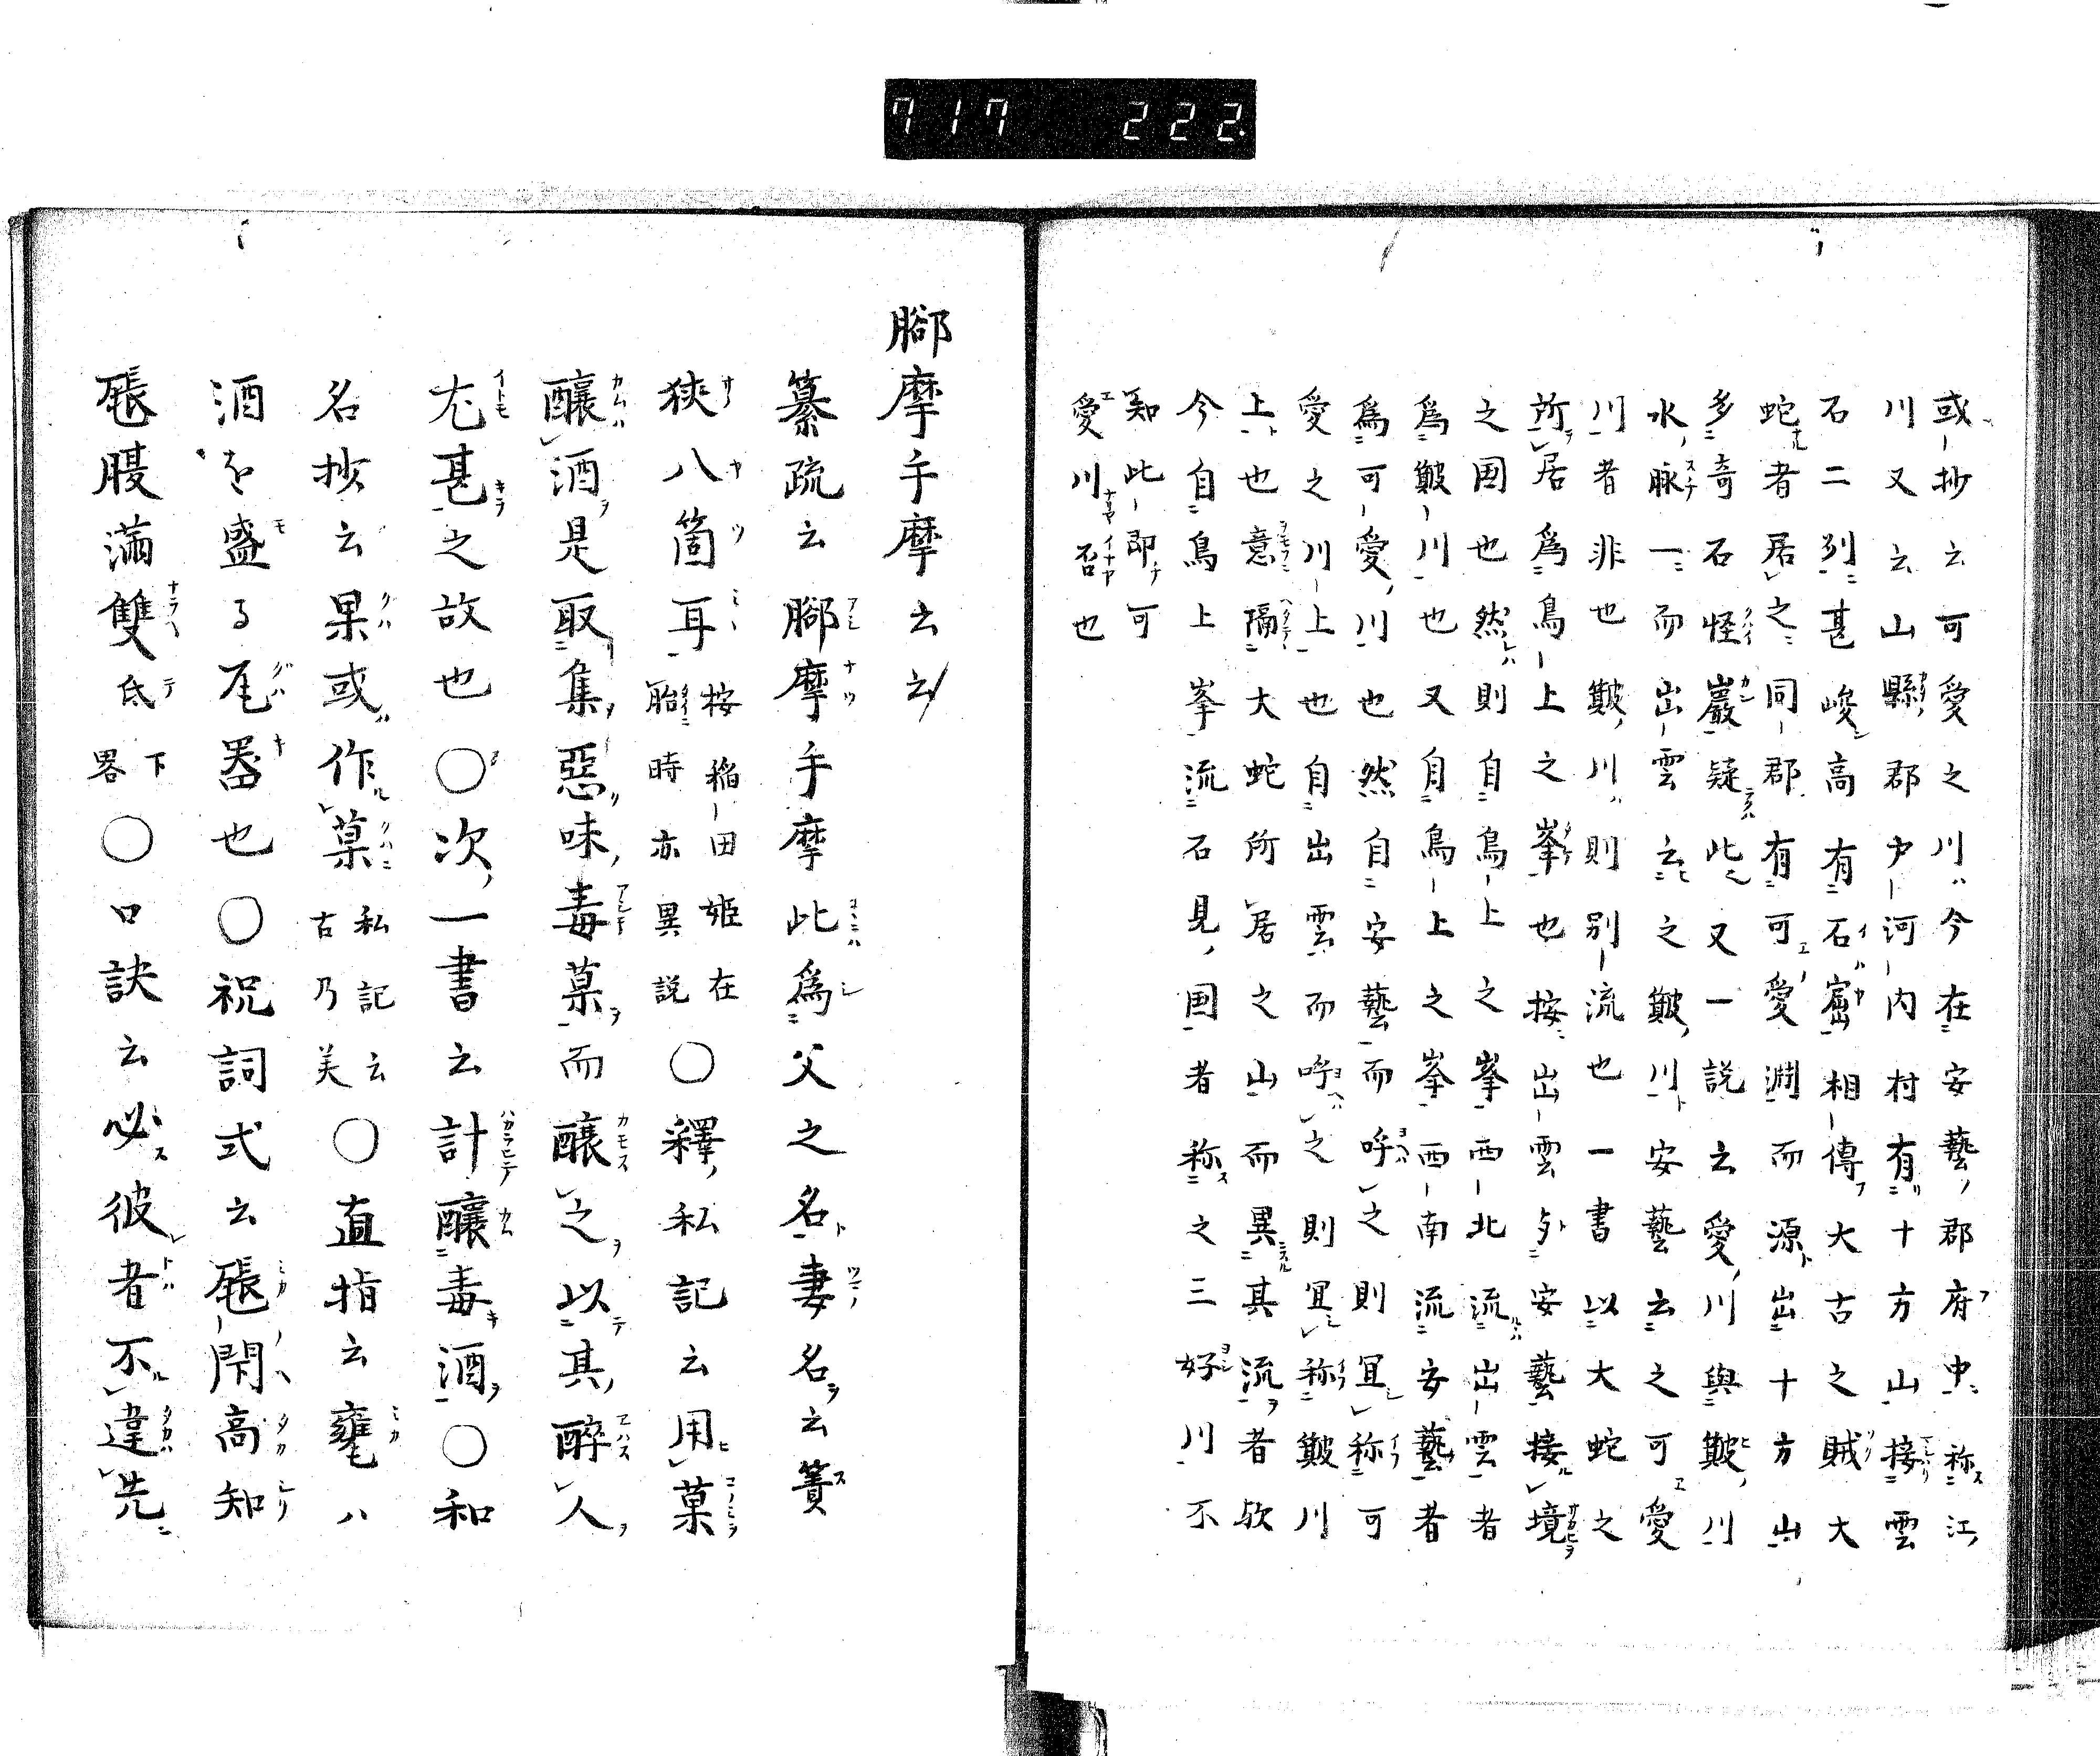 717 222.
或抄云可愛之川ハ今在安藝ノ郡府中称江
川又云山縣郡中河内村有十方山接雲
石二列甚峻高有石窟相傳大古之賊大
蛇者居之同郡有可愛淵而源出十方山
多奇石怪巖疑此又一説云愛川與簸川
水脉一而出雲云之簸川安藝云之可愛
川者非也簸川則別流也一書以大蛇之
所居爲鳥上之峯也按出雲与安藝接境
之国也然則自鳥上之峯西北流出雲者
爲簸川也又自鳥上之峯西南流安藝者
爲可愛川也然自安藝而呼之則冝称可
愛之川上也自出雲而呼之則冝称簸川
上也意隔大蛇所居之山而異其流者欤
今自鳥上峯流石見国者称之三好川不
知此即可
愛川否也
腳摩手摩云云
纂疏云腳摩手摩此爲父之名妻名云簀
狹八箇耳按稲田姫在胎時亦異説○釋私記云用菓
釀酒是取集惡味毒菓而釀之以其醉人
尤甚之故也○次一書云計釀毒酒○和
名抄云果或作菓私記云古乃美○直指云甕ハ
酒を盛る瓦器也○祝詞式云𤭖閇高知
𤭖腹滿雙氐下畧○口訣云必彼者不違先